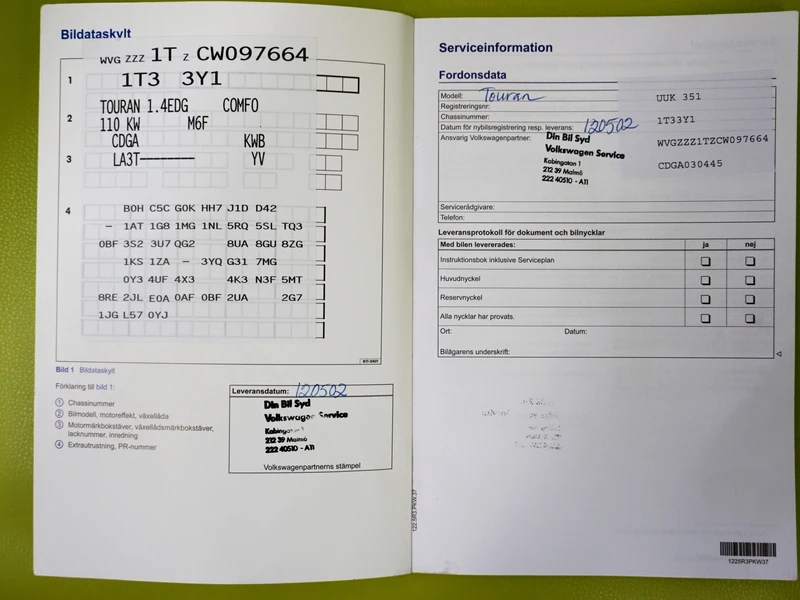 Bildataskvlt
WVG ZZZ 1T Z CW097664
1
1T3 3Y1
TOURAN 1.4EDG COMFO
2
110 KW M6F
CDGA KWB
3
LA3T-------- YV
4
B0H C5C G0K HH7 J1D D42
- 1AT 1G8 1MG 1NL 5RQ 5SL TQ3
0BF 3S2 3U7 QG2 8UA 8GU 8ZG
1KS 1ZA - 3YQ G31 7MG
0Y3 4UF 4X3 4K3 N3F 5MT
8RE 2JL E0A 0AF 0BF 2UA 2G7
1JG L57 0YJ
Bild 1 Bildataskylt
Förklaring till bild 1:
1 Chassinummer
2 Bilmodell, motoreffekt, växellåda
3 Motormärkbokstäver, växellådsmärkbokstäver,
lacknummer, inredning
4 Extrautrustning, PR-nummer
Leveransdatum: 120502
Din Bil Syd
Volkswagen Service
Kabingatan 1
212 39 Malmö
222 40510 - ATI
Volkswagenpartnerns stämpel
Serviceinformation
Fordonsdata
Modell: Touran
Registreringsnr:
Chassinummer:
Datum för nybilsregistrering resp. leverans: 120502
Ansvarig Volkswagenpartner:
Din Bil Syd
Volkswagen Service
Kabingatan 1
212 39 Malmö
222 40510 - ATI
UUK 351
1T33Y1
WVGZZZ1TZCW097664
CDGA030445
Servicerådgivare:
Telefon:
Leveransprotokoll för dokument och bilnycklar
Med bilen levererades: ja nej
Instruktionsbok inklusive Serviceplan
Huvudnyckel
Reservnyckel
Alla nycklar har provats.
Ort: Datum:
Bilägarens underskrift:
122.5R3.PKW.37
1225R3PKW37